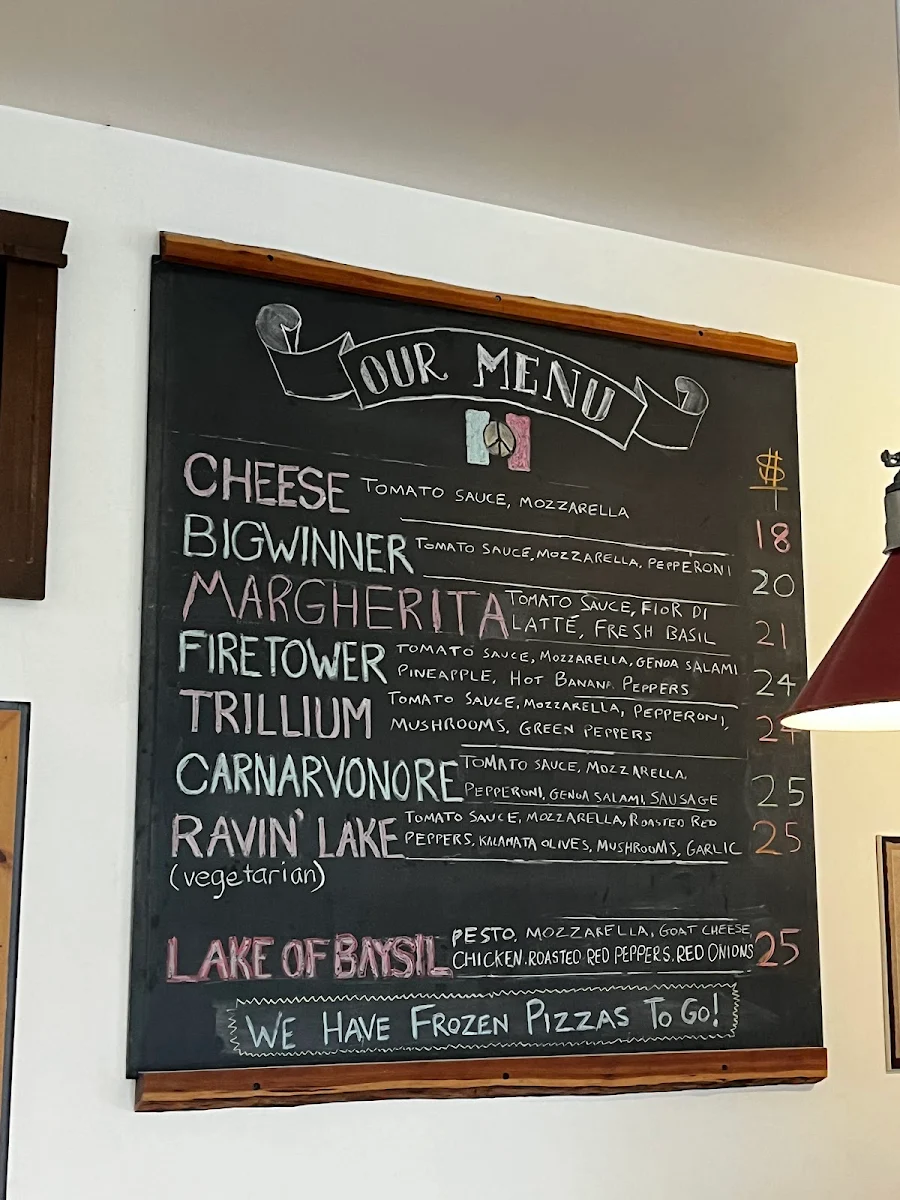 OUR MENU
$
CHEESE TOMATO SAUCE, MOZZARELLA 18
BIGWINNER TOMATO SAUCE, MOZZARELLA, PEPPERONI 20
MARGHERITA TOMATO SAUCE, FIOR DI
LATTÉ, FRESH BASIL 21
FIRETOWER TOMATO SAUCE, MOZZARELLA, GENOA SALAMI
PINEAPPLE, HOT BANANA PEPPERS 24
TRILLIUM TOMATO SAUCE, MOZZARELLA, PEPPERONI,
MUSHROOMS, GREEN PEPPERS 24
CARNARVONORE TOMATO SAUCE, MOZZARELLA,
PEPPERONI, GENOA SALAMI, SAUSAGE 25
RAVIN' LAKE TOMATO SAUCE, MOZZARELLA, ROASTED RED
PEPPERS, KALAMATA OLIVES, MUSHROOMS, GARLIC 25
(vegetarian)
LAKE OF BAYSIL PESTO, MOZZARELLA, GOAT CHEESE,
CHICKEN, ROASTED RED PEPPERS, RED ONIONS 25
WE HAVE FROZEN PIZZAS TO GO!